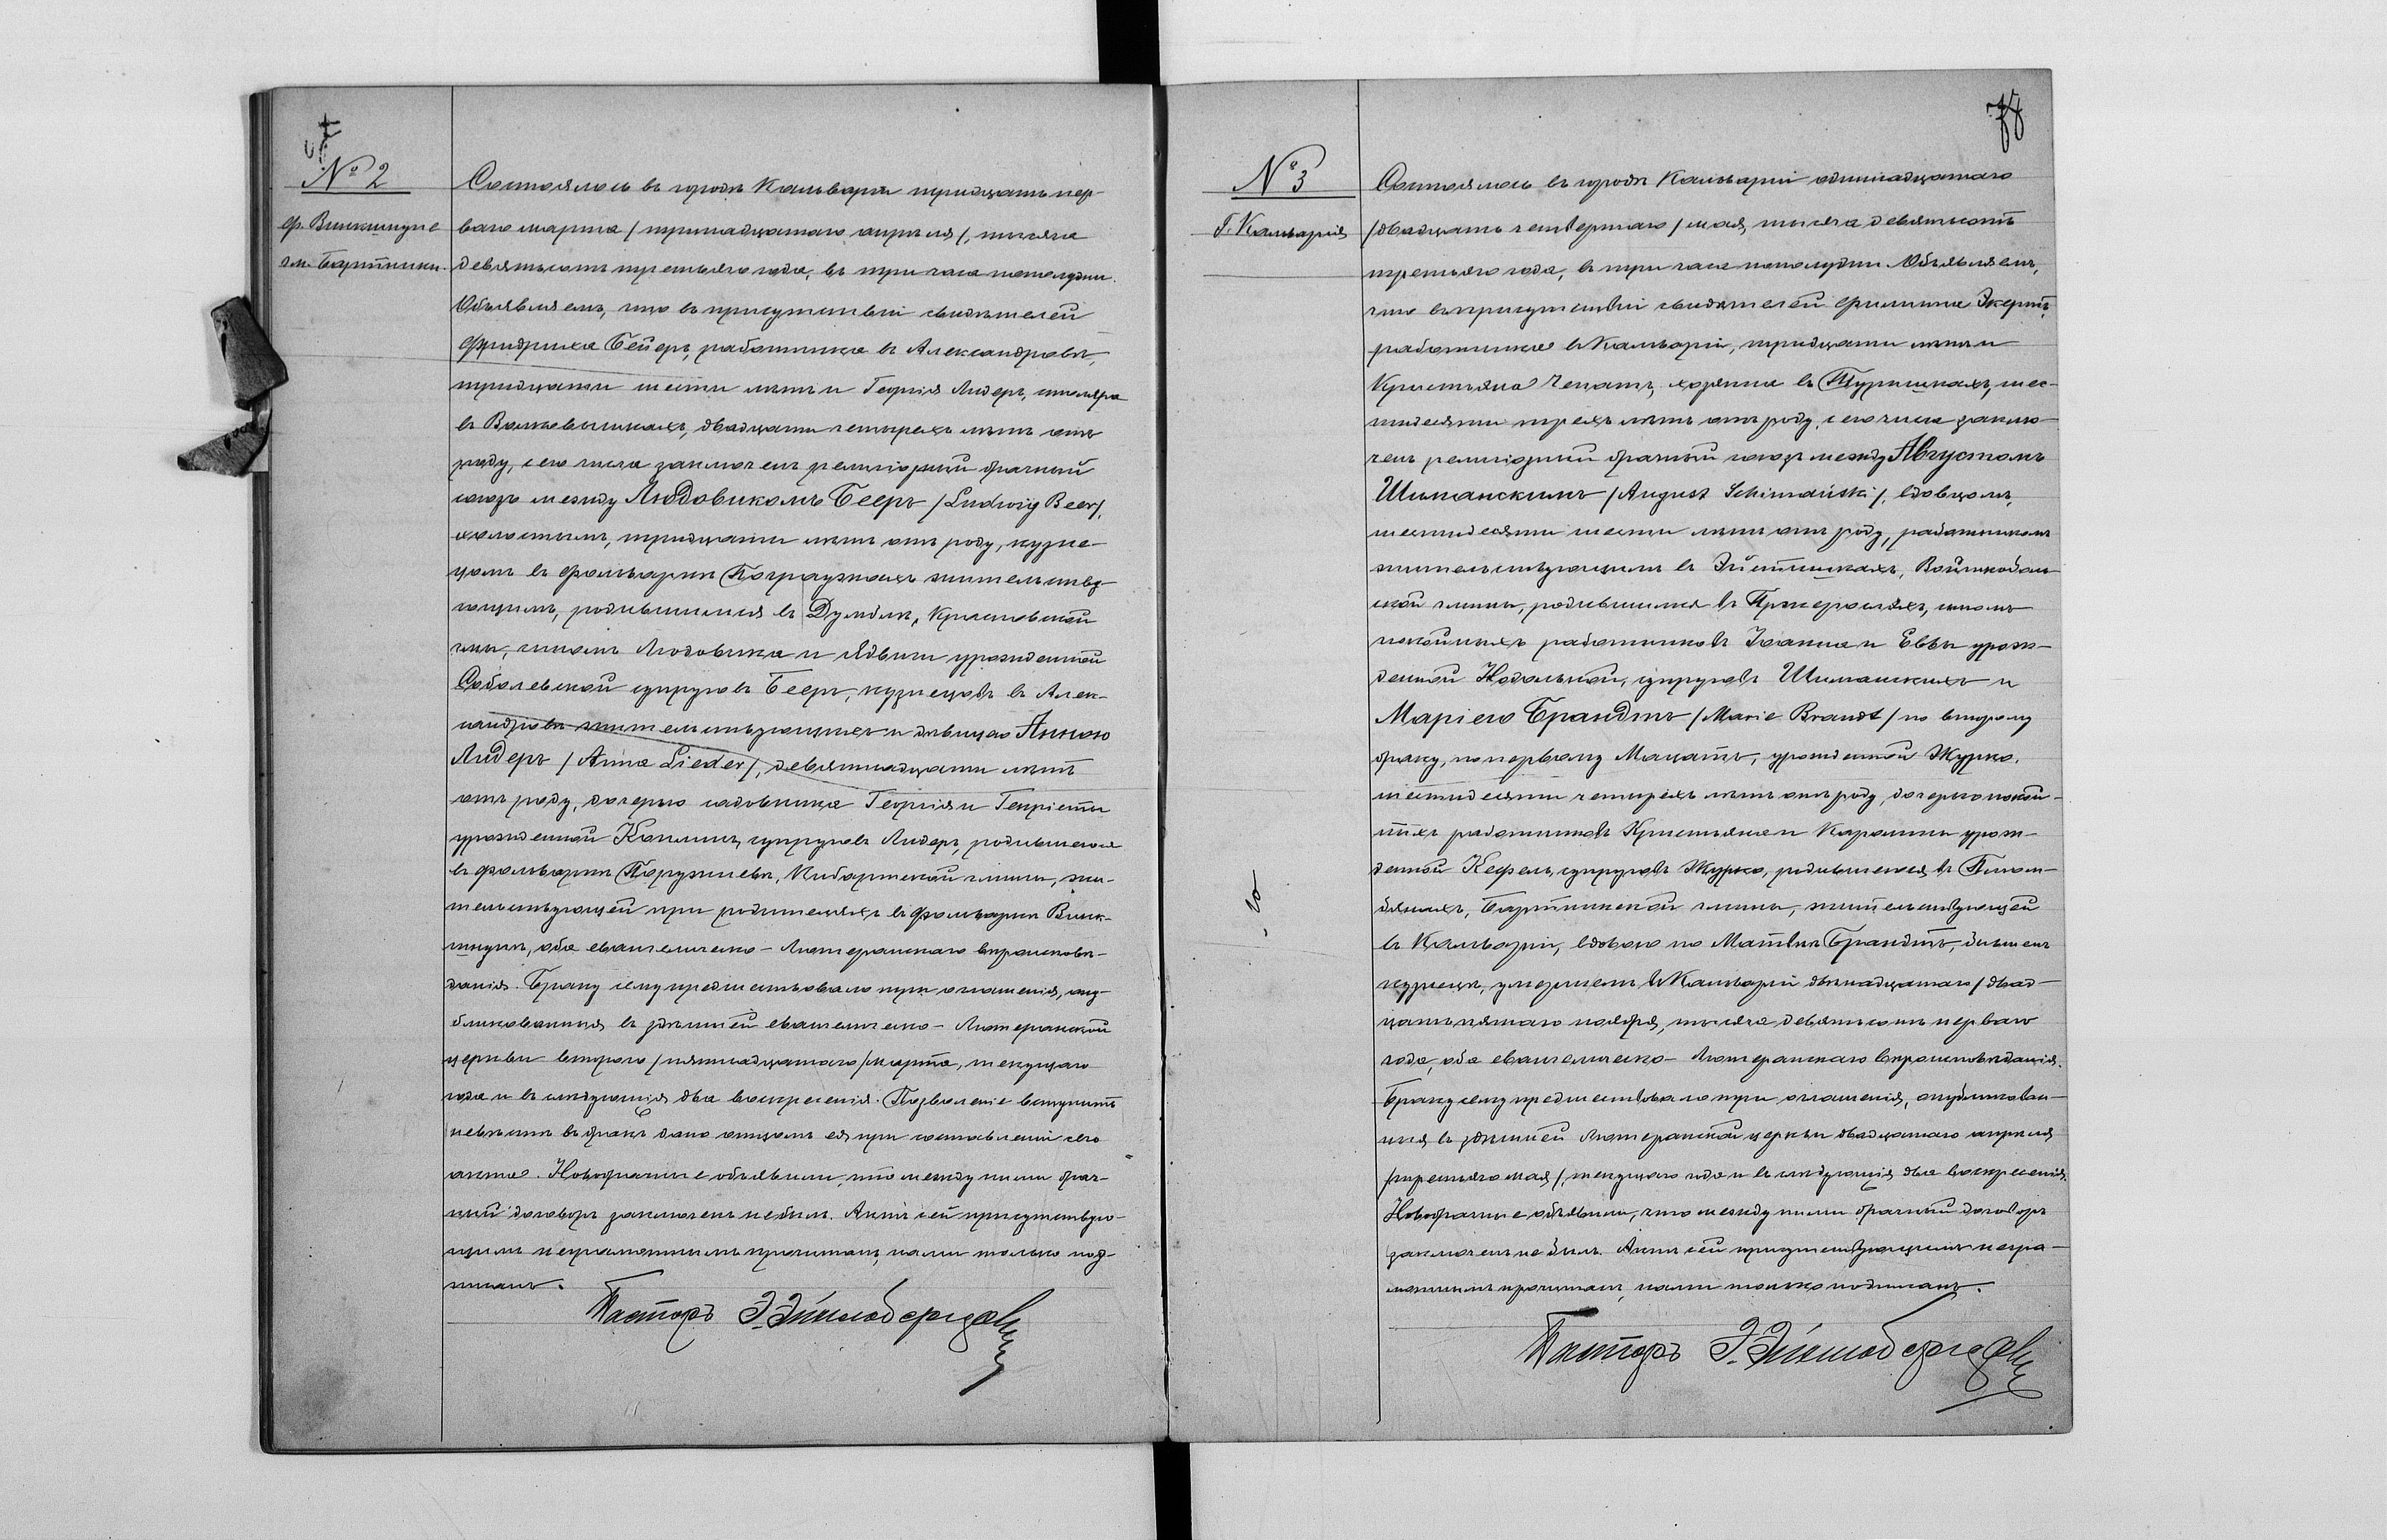 № 2
ф. Винкшнупе
гм. Бартники.
Состоялось въ городѣ Кальваріи тридцать пер-
ваго марта /тринадцатаго апрѣля/, тысяча
девятьсотъ третьяго года, въ три часа пополудни.
Объявляемъ, что въ присутствіи свидѣтелей
Фридриха Бейеръ, работника въ Александровѣ,
тридцати шести лѣтъ и Георгія Лидеръ, столяра
въ Волковышкахъ, двадцати четырехъ лѣтъ отъ
роду, сего числа заключенъ религіозный брачный
союзъ между Людовикомъ Бееръ /Ludwig Beer/,
холостымъ, тридцати лѣтъ отъ роду, кузне-
цомъ въ фольваркѣ жительству-
ющимъ, родившимся въ Думблѣ, Красновской
гмины, сыномъ Людовика и Ядвиги урожденной
Соболевской супруговъ Бееръ, кузнецовъ въ Алек-
сандровѣ жительствующихъ и дѣвицею Анною
Лидеръ /Anna Lieder/, девятнадцати лѣтъ
отъ роду, дочерью садовника Георгія и Генріетты
урожденной супруговъ Лидеръ, родившеюся
въ фольваркѣ Кибартской гмины, жи-
тельствующей при родителяхъ въ фольваркѣ Винк-
шнупе, оба евангелическо-Лютеранскаго вѣроисповѣ-
данія. Браку сему предшествовало три оглашенія, опу-
бликованныя въ здѣшней евангелическо-Лютеранской
церкви втораго /пятнадцатаго/ марта, текущаго
года и въ слѣдующія два воскресенія. Позволеніе вступить
невѣстѣ въ бракъ дано отцомъ ея при составленіи сего
акта. Новобрачные объявили, что между ними брач-
ный договоръ заключенъ не былъ. Актъ сей присутствую-
щимъ неграмотнымъ прочитанъ, нами только под-
писанъ.
Пасторъ
78
№ 3
Г. Кальварія
Состоялось въ городѣ Кальваріи одиннадцатаго
/двадцать четвертаго/ мая, тысяча девятьсотъ
третьяго года, въ три часа пополудни. Объявляемъ,
что въ присутствіи свидѣтелей Филиппа Экертъ,
работника въ Кальваріи, тридцати лѣтъ и
Кристьяна хозяина въ шес-
тидесяти трехъ лѣтъ отъ роду, сего числа заклю-
ченъ религіозный брачный союзъ между Августомъ
Шиманскимъ /August Schimański/, вдовцомъ,
шестидесяти шести лѣтъ отъ роду, работникомъ
жительствующимъ въ
ской гмины, родившимся въ Пржерослѣ, сыномъ
покойныхъ работниковъ Іоанна и Еввы урож-
денной супруговъ Шиманскихъ и
Маріею Брандтъ /Marie Brandt/ по второму
браку, по первому урожденной Журко,
шестидесяти четырехъ лѣтъ отъ роду, дочерью покой-
ныхъ работниковъ Кристьяна и Каролины урож-
денной Кефель, супруговъ Журко, родившеюся въ
Бартникской гмины, жительствующей
въ Кальваріи, вдовою по Матвѣѣ Брандтъ, бывшемъ
кузнецѣ, умершемъ въ Кальваріи двѣнадцатаго /двад-
цать пятаго ноября, тысяча девятьсотъ перваго
года, оба евангелическо-Лютеранскаго вѣроисповѣданія.
Браку сему предшествовало три оглашенія, опубликован-
ныя въ здѣшней Лютеранской церкви двадцатаго апрѣля
/третьяго мая/, текущаго года и въ слѣдующія два воскресенія.
Новобрачные объявили, что между ними брачный договоръ
заключенъ не былъ. Актъ сей присутствующимъ негра-
мотнымъ прочитанъ, нами только подписанъ.
Пасторъ